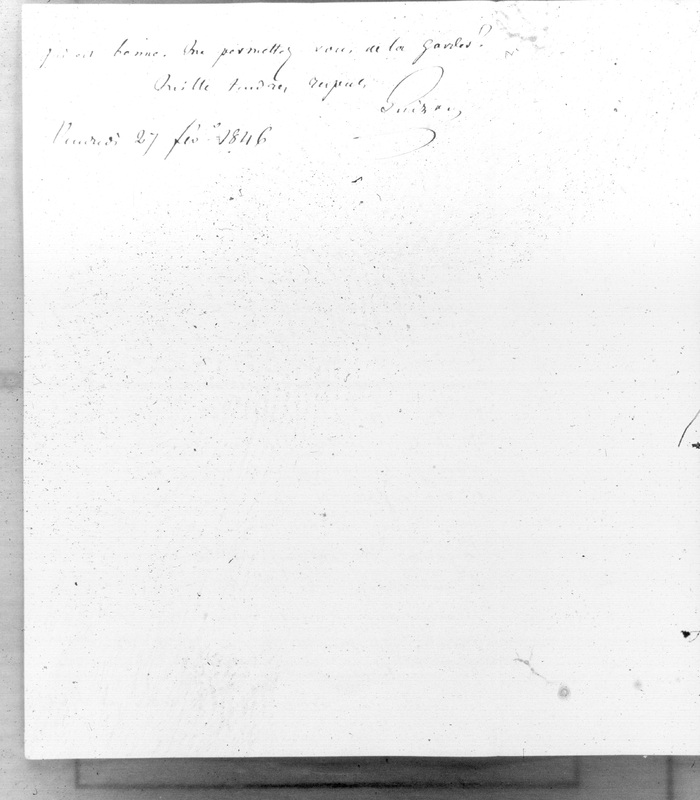 est bonne. Me permettez vous de la garder?
Mille tendres respects
Guizot
Vendredi 27 fév. 1846